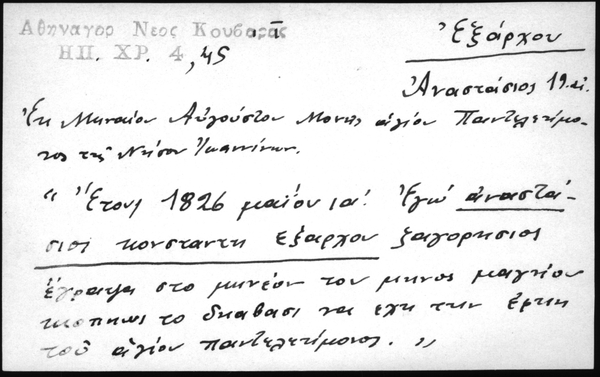 Αθηναγορ Νεος Κουβαρας Ι
ΗΠ. ΧΡ. 4, 45
Ἐξάρχου
Ἀναστάσιος 19 αἰ.
Ἐκ Μηναίου Αὐγούστου Μονῆς ἁγίου Παντελεήμο-
νος τῆς Νήσου Ἰωαννίνων.
" Ἔτους 1826 μαΐου ια! Ἐγώ ἀναστά-
σιος κονσταντη εξαρχου ζαγορησιος
ἔγραψα στο μηνέον του μηνος μαγηου
το διαβασι να εχη την ἐφκη
τοῦ ἁγίου παντελεήμονος. "